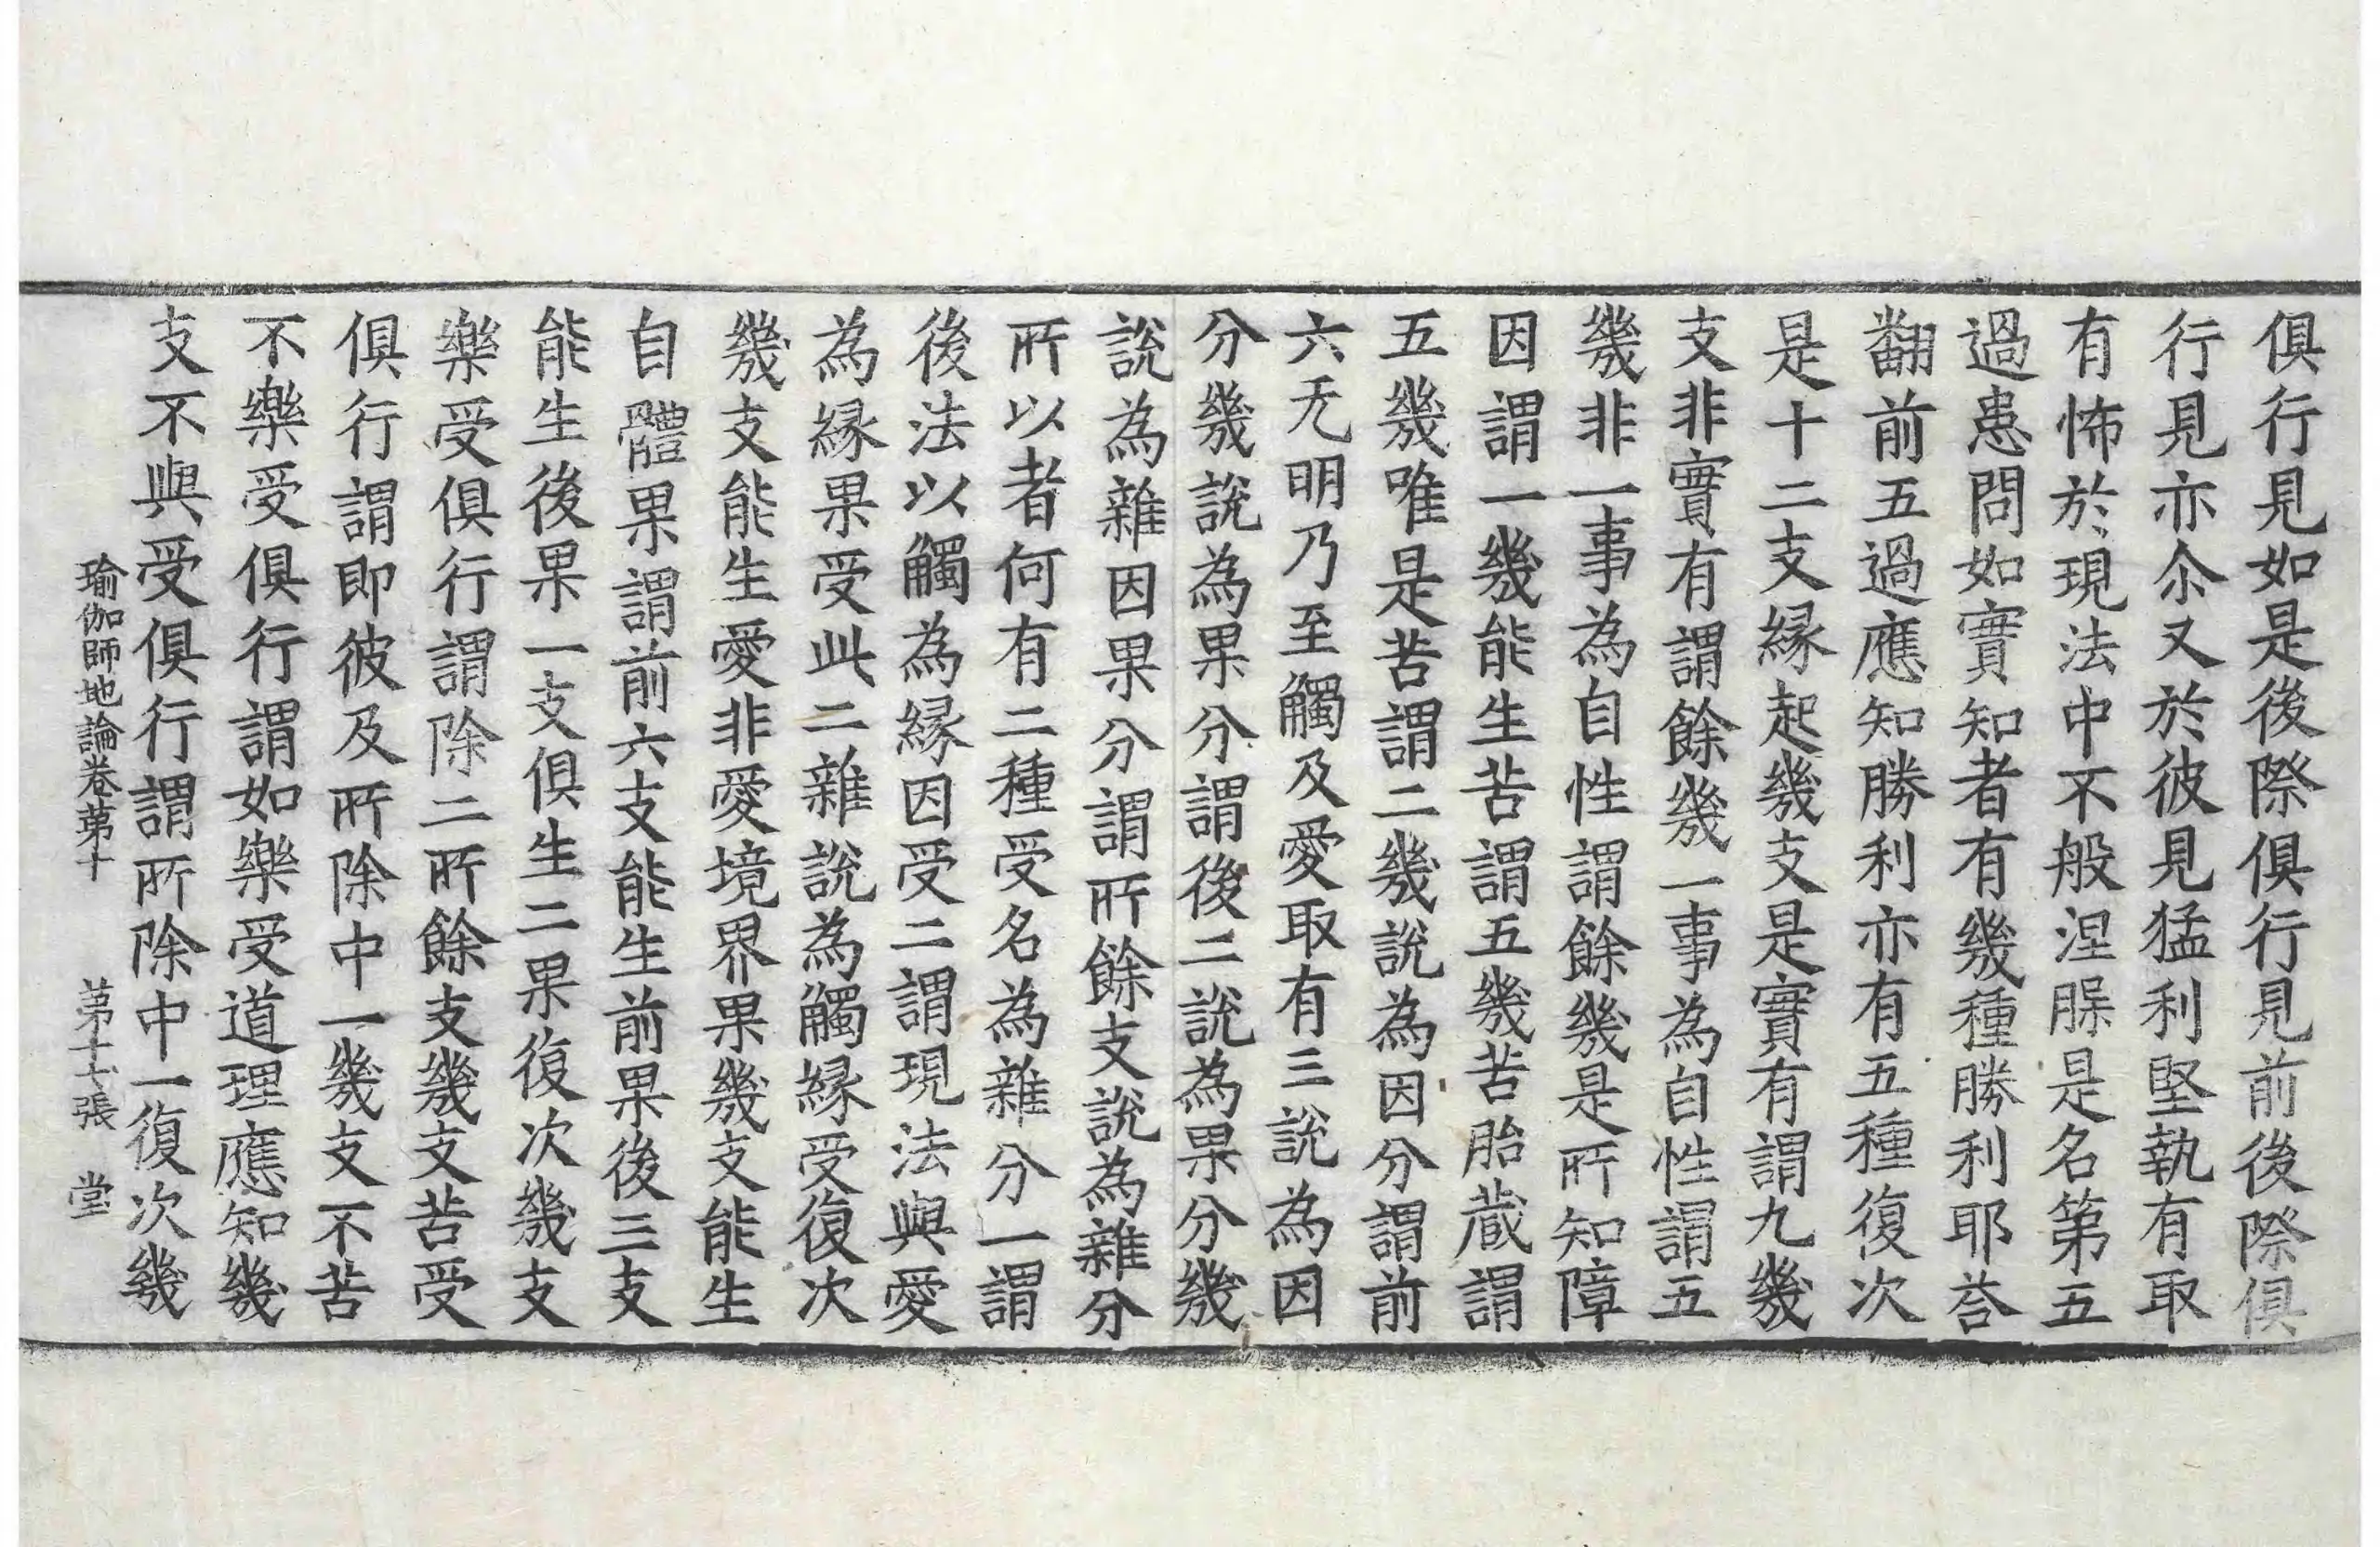 俱行見如是後際俱行見前後際俱
行見亦尒又於彼見猛利堅執有取
有怖於現法中不般涅槃是名第五
過患問如實知者有幾種勝利耶荅
翻前五過應知勝利亦有五種復次
是十二支縁起幾支是實有謂九幾
支非實有謂餘幾一事為自性謂五
幾非一事為自性謂餘幾是所知障
因謂一幾能生苦謂五幾苦胎蔵謂
五幾唯是苦謂二幾說為因分謂前
六无明乃至觸及愛取有三說為因
分幾說為果分謂後二說為果分幾
說為雜因果分謂所餘支說為雜分
所以者何有二種受名為雜分一謂
後法以觸為縁因受二謂現法與愛
為縁果受此二雜說為觸縁受復次
幾支能生愛非愛境界果幾支能生
自體果謂前六支能生前果後三支
能生後果一支俱生二果復次幾支
樂受俱行謂除二所餘支幾支苦受
俱行謂即彼及所除中一幾支不苦
不樂受俱行謂如樂受道理應知幾
支不與受俱行謂所除中一復次幾
瑜伽師地論卷苐十 苐十七張 堂